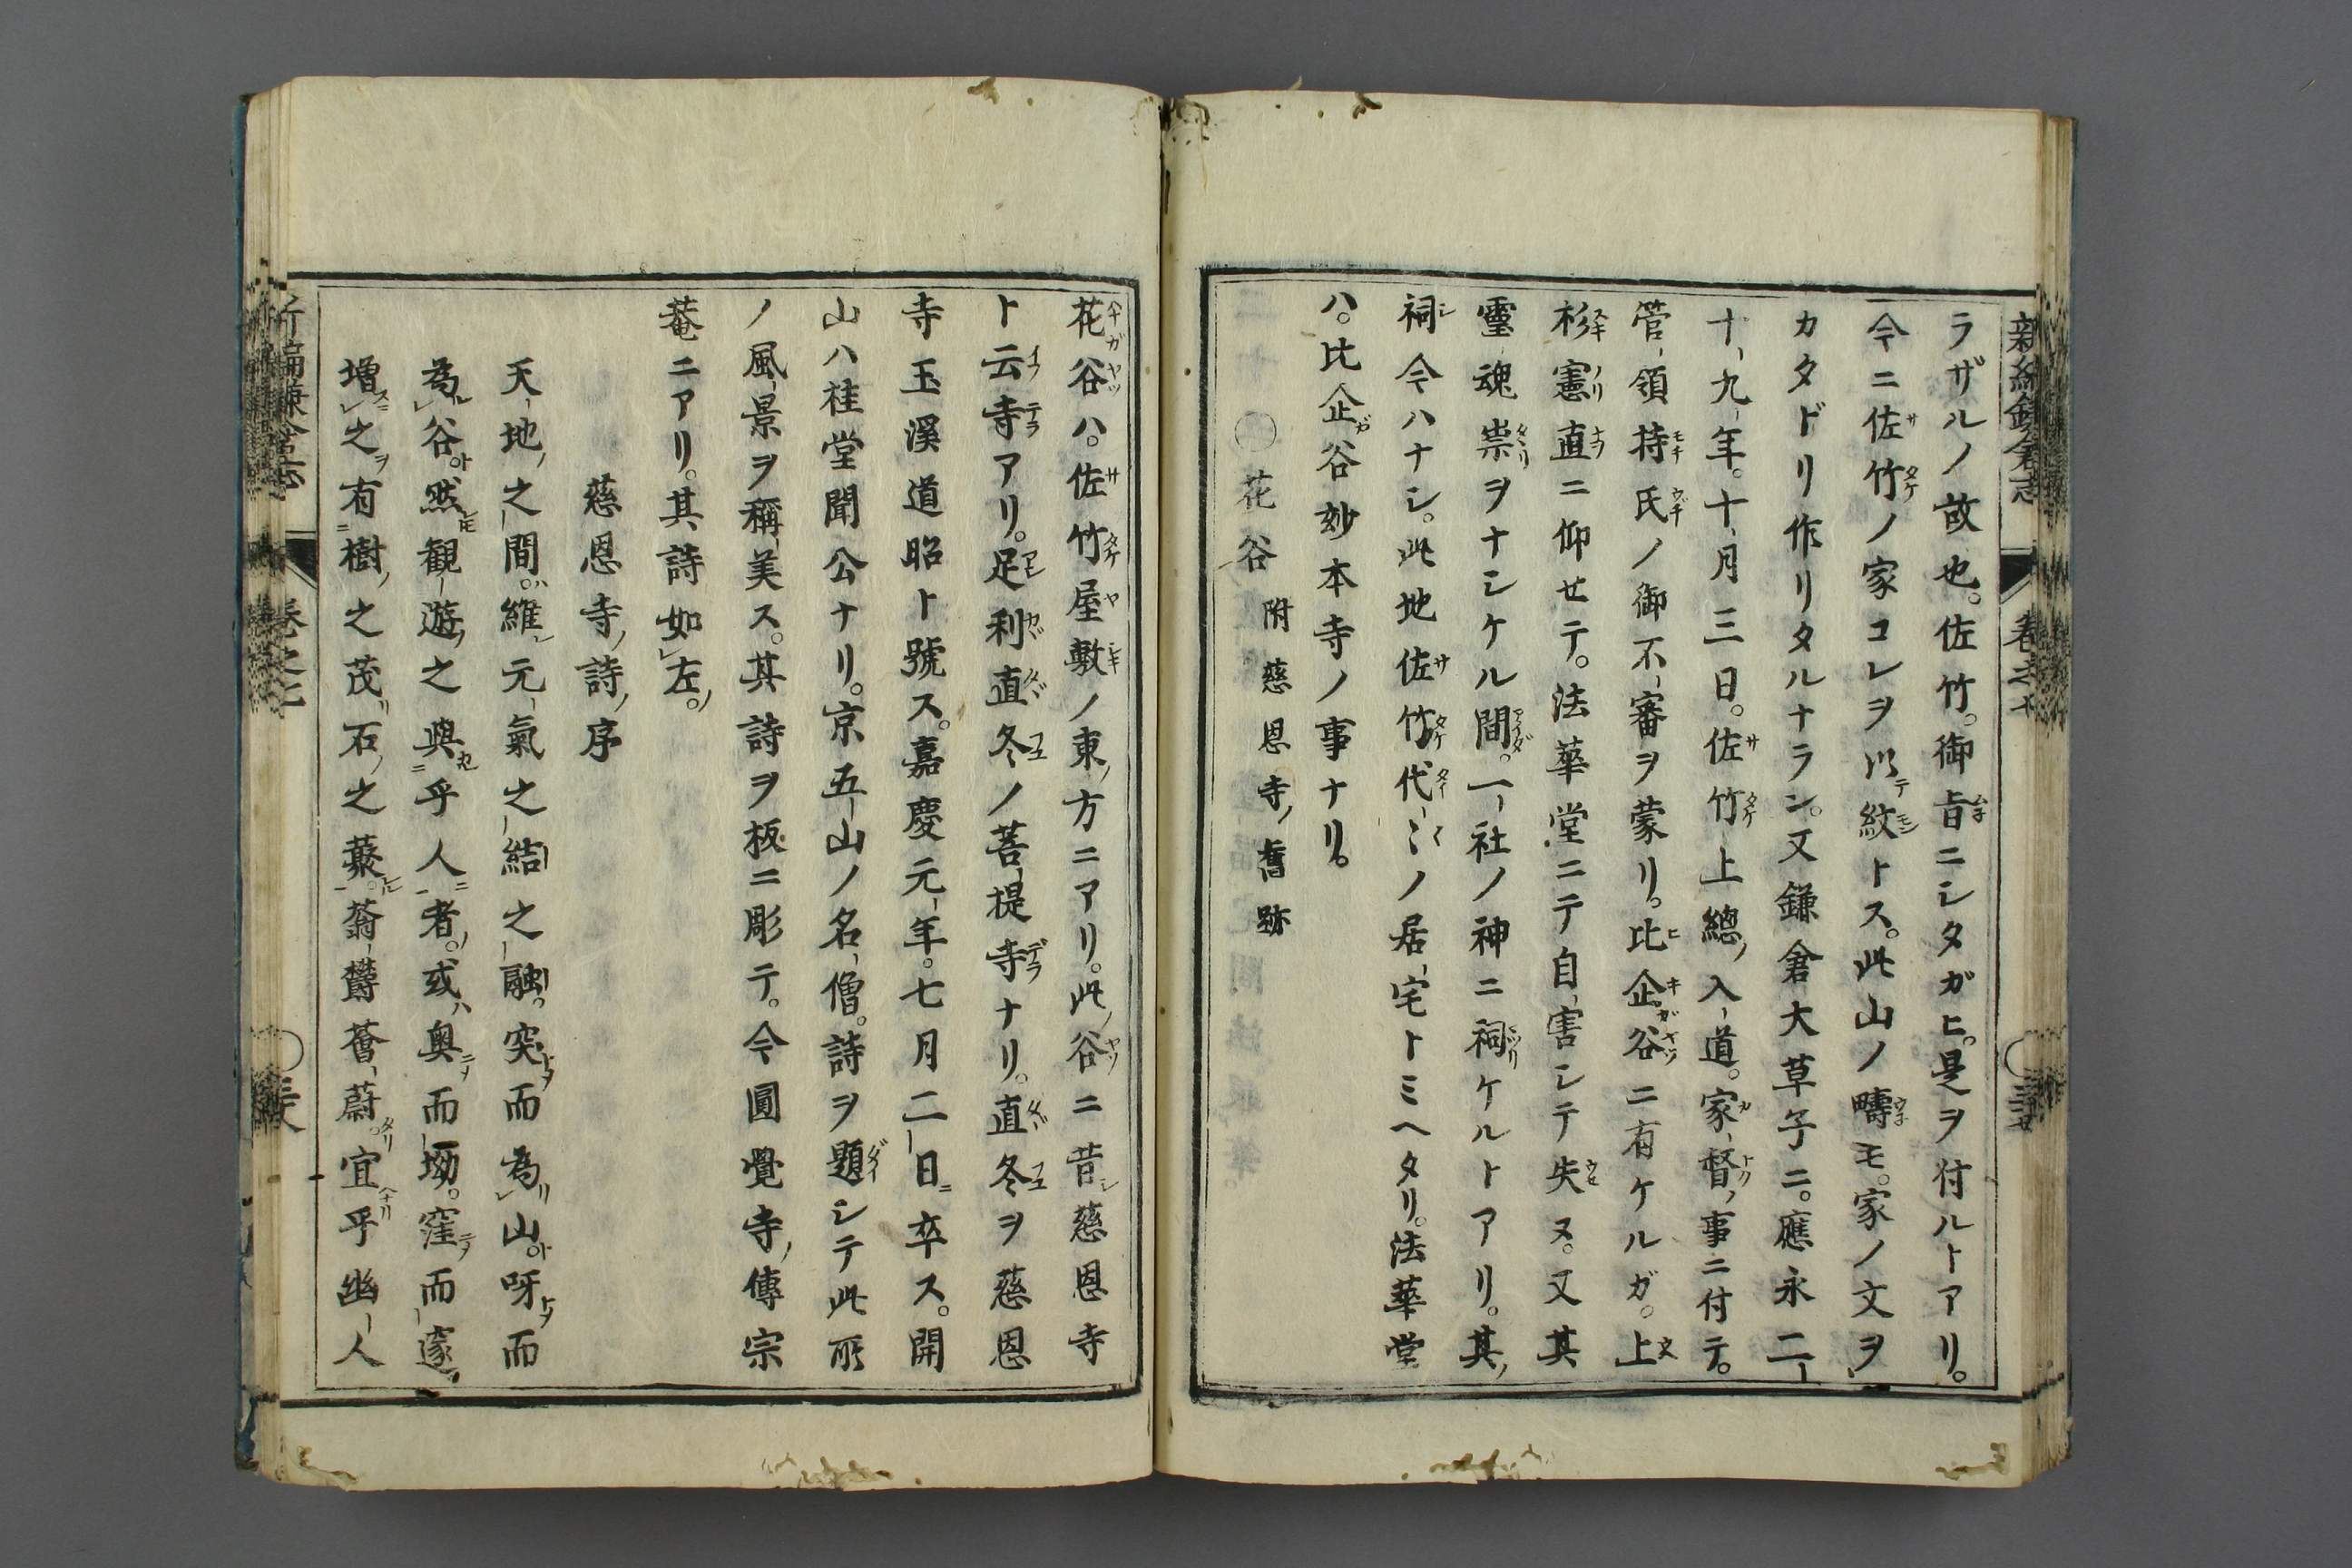 ラザルノ故也。佐竹。御旨ニシタガヒ。是ヲ付ルトアリ。
今ニ佐竹ノ家コレヲ以テ紋トス。此山ノ疇モ。家ノ文ヲ
カタドリ作リタルナラン。又鎌倉大草子ニ。應永二
十九年。十月三日。佐竹上總入道。家督ノ事ニ付テ。
管領持氏ノ御不審ヲ蒙リ。比企谷ニ有ケルガ。上
杉憲直ニ仰セテ。法華堂ニテ自害シテ失ヌ。又其
靈魂祟ヲナシケル間。一社ノ神ニ祠ケルトアリ。其
祠今ハナシ。此地佐竹代〻ノ居宅トミヘタリ。法華堂
ハ。比企谷妙本寺ノ事ナリ。
○花谷 附慈恩寺ノ舊跡
花谷ハ。佐竹屋敷ノ東ノ方ニアリ。此谷ニ昔シ慈恩寺
ト云寺アリ。足利直冬ノ菩提寺ナリ。直冬ヲ慈恩
寺玉溪道昭ト號ス。嘉慶元年。七月二日ニ卒ス。開
山ハ桂堂聞公ナリ。京五山ノ名僧。詩ヲ題シテ此所
ノ風景ヲ稱美ス。其詩ヲ板ニ彫テ。今圓覺寺ノ傳宗
菴ニアリ。其詩如左。
慈恩寺ノ詩ノ序
天地之間。維元氣之結之融。突而為山。呀而
為谷。然觀遊之與乎人者。或奥而坳。窪而邃。
増之有樹之茂。石之藂。蓊欝薈蔚。宜乎幽人
新編鎌倉志
卷之七